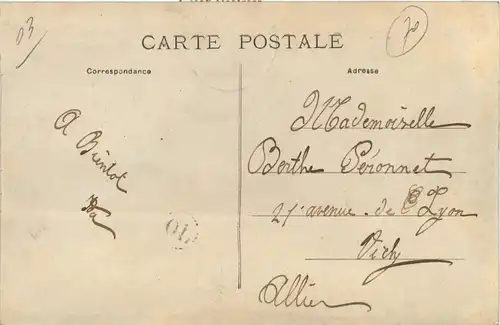 03
70
CARTE POSTALE
Correspondance
Adresse
A Bientot
Mademoiselle
Berthe Péronnet
21 avenue de Lyon
Vichy
Allier